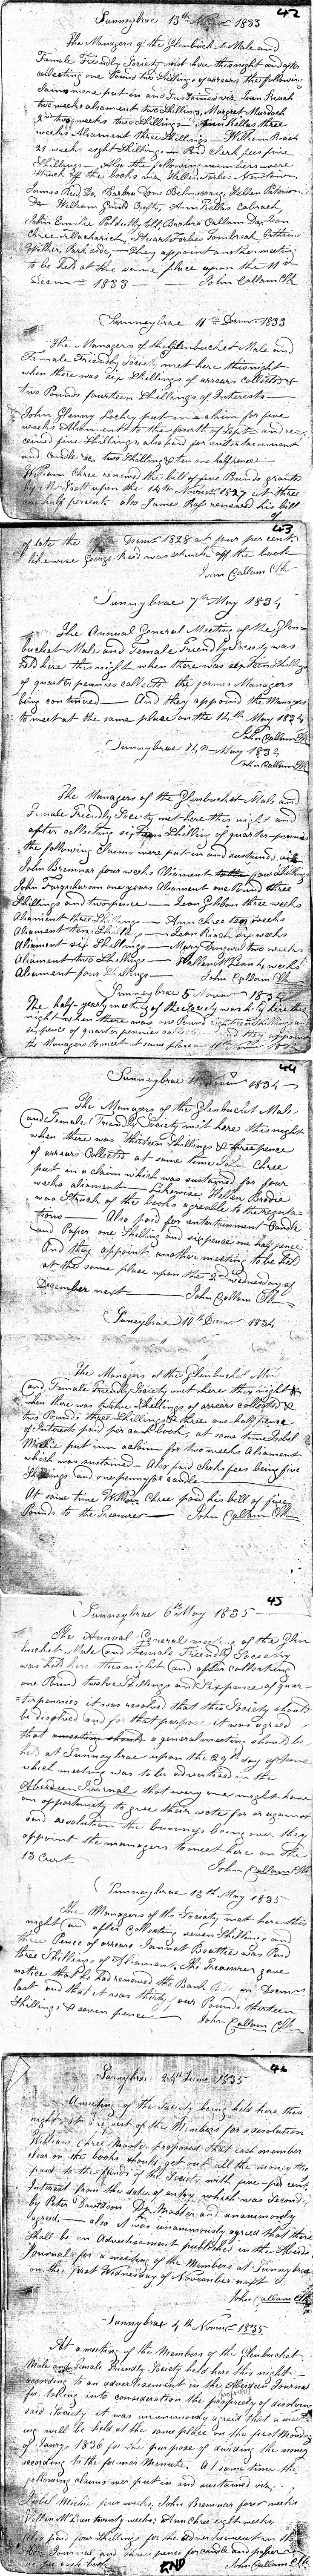 42
Sunneybrae 13th Novr 1833
The Managers of the Glenbucket Male and
Female Friendly Society met here this night and after
collecting one Pound two Shillings of arrears the following
Claims were put in and Sustained viz Jean Roach
two weeks aliament two Shillings, Margret Murdoch
two weeks two Shillings Ann Kellas three
weeks Aliament three Shillings William Roach
21 weeks eight Shillings Pd Clerk fees five
Shillings Also the following members were
Struck off the books viz Hellen Forbes
James Reid Do Barbra Gow Hellen Paterson
Do William Crofts, Ann Kellas Cabrach
Barbara Callam Do Jean
Chree Stuart Forbes
Park side, They appoint another meeting
to be held at the same place upon the 11th
Decemr 1833 John Callam Clk
Sunneybrae 11th Decmr 1833
The Managers of the Glenbucket Male and
Female Friendly Society met here this night
when there was six Shillings of arrears collected &
two Pounds fourteen Shillings of Interests
John Glenny Lochry put in a claim for five
weeks Aliment to the fourth of Septr and re-
ceived five Shillings also paid for entertainment
and Candle two Shillings & ten one half pence
William Chree renewed the bill of five Pounds granted
by Mr Scott upon the 14th Novemr 1827 at three
one half percent also James Ross renewed his bill
of
43
of date the Decmr 1828 at four per cent
likewise George Reid was struck off the book
John Callam Clk
Sunnybrae 7th May 1834
The Annual General Meeting of the Glen-
bucket Male and Female Friendly Society was
held here this night when there was sixteen Shillings
of quarter pennies collected the former Managers
being continued And they appoint the Managers
to meet at the same place on the 14th May 1834
John Callam Clk
Sunnybrae 14th May 1834
John Callam Clk
The Managers of the Glenbucket Male and
Female Friendly Society met here this night and
after collecting Shilling of quarter pennies
the following Claims were put in and sustained viz
John Brennar four weeks Aliament four Shillings
John Farquharson one years Aliament one Pound three
Shillings and twopence Jean Gibbon three weeks
Aliament three Shillings Ann Chree ten weeks
Aliament ten Shillings Jean Roach six weeks
Aliament six Shillings Mary two weeks
Aliament two Shillings Hellen McLean 4 weeks
Aliament four Shillings John Callam Clk
Sunnybrae 5 Novemr 1834
The half-yearly meeting of the Society was held here this
night when there was one Pound Shillings and
sixpence of quarter pennies and they appoint
the Managers to meet at same place on 11th Novemr 1834
44
Sunnybrae 11 Novemr 1834
The Managers of the Glenbucket Male
and Female Friendly Society met here this night
when there was thirteen Shillings & threepence
of arrears Collected at same time Chree
put in a claim which was sustained for four
weeks aliament Likewise Hellen Brodie
was Struck of the books agreeable to the regula-
tions Also paid for entertainment Candle
and Paper one Shilling and sixpence one half pence
And they appoint another meeting to be held
at the same place upon the 2nd Wednesday of
December next John Callam Clk
Sunnybrae 10th Decmr 1834
The Managers of the Glenbucket Male
and Female Friendly Society met here this night &
when there was twelve Shillings of arrears collected &
two Pounds three Shillings & three one half pence
of Interests paid per cash book, at same time Isobel
Michie put in a claim for two weeks Aliament
which was sustained Also paid Clerks fees being five
Shillings and one penny for candle
At same time William Chree paid his bill of five
Pounds to the Treasurer John Callam Clk
45
Sunneybrae 6th May 1835
The Annual General meeting of the Glen-
bucket Male and Female Friendly Society
was held here this night and after collecting
one Pound twelve Shillings and Sixpence of quar-
terpennies it was resolved that this Society should
be disolved and for that purpose it was agreed
that a general meeting should be
held at Sunneybrae upon the 29th day of June
which meeting was to be advertised in the
Aberdeen Journal that every one might have
an opportunity to give their vote for or against
said resolution the business being over they
appoint the managers to meet here on the
13 Curt John Callam Clk
Sunneybrae 13th May 1835
The Managers of the Society met here this
night an after Collecting seven Shillings and
three Pence of arrears Jannet Beattie was Paid
three Shillings of Aliament. The Treasurer gave
notice that he had renewed the Bank Bill on Decemr
last and that it was thirty four Pounds thirteen
Shillings & seven pence John Callam Clk
46
Sunnybrae 24th June 1835
A meeting of the Society being held here this
night at a request of the Members for a desolution
William Chree Master proposed that each member
clear on the books should get out all the money they
paid to the funds of the Society with five per cent
Interest from the date of entry which was seconded
by Peter Davidson Dy Master and unanimously
agreed. also it was unanimously agreed that there
shall be an Advertisement published in the Aberdn
Journal for a meeting of the Members at Sunnybrae
on the first Wednesday of November next
John Callam Clk
Sunnybrae 4th Novemr 1835
At a meeting of the Members of the Glenbucket
Male and Female Friendly Society held here this night
according to an advertisement in the Aberdeen Journal
for taking into consideration the propriety of desolving
said Society it was unanimously agreed that a meet-
ing will be held at the same place on the first Monday
of Janry 1836 for the purpose of dividing the money
according to the former Minute. At same time the
following claims wer put in and sustained viz.
Isobel Michie four weeks, John Brennar four weeks
Hellen McLean twenty weeks; Ann Chree eight weeks,
Also paid four Shillings for the advertisement in the
Journal and three pence for candle and paper
as per cash book John Callam Clk
END